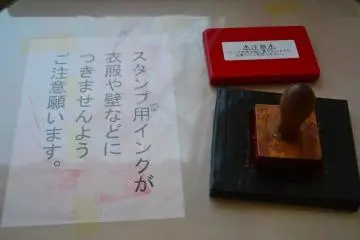 スタンプ用インクが
衣服や壁などに
つきませんよう
ご注意願います。
⚠注意⚠